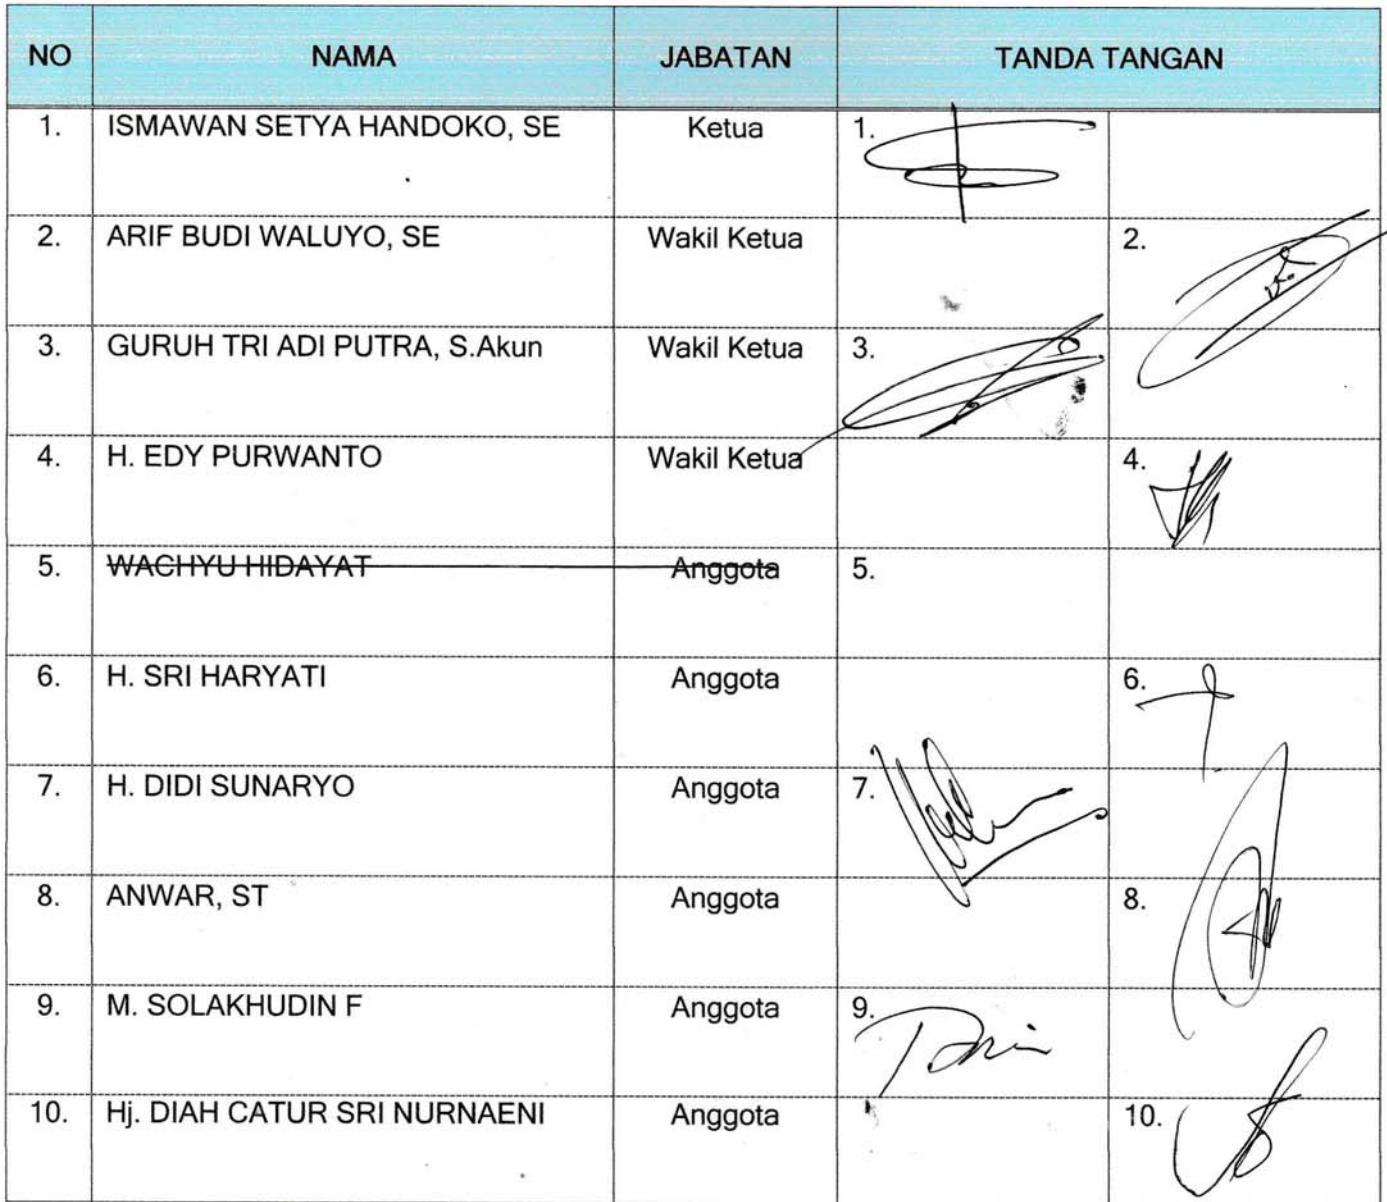 NO NAMA JABATAN TANDA TANGAN
1. ISMAWAN SETYA HANDOKO, SE Ketua 1.
2. ARIF BUDI WALUYO, SE Wakil Ketua 2.
3. GURUH TRI ADI PUTRA, S.Akun Wakil Ketua 3.
4. H. EDY PURWANTO Wakil Ketua 4.
5. WACHYU HIDAYAT Anggota 5.
6. H. SRI HARYATI Anggota 6.
7. H. DIDI SUNARYO Anggota 7.
8. ANWAR, ST Anggota 8.
9. M. SOLAKHUDIN F Anggota 9.
10. Hj. DIAH CATUR SRI NURNAENI Anggota 10.